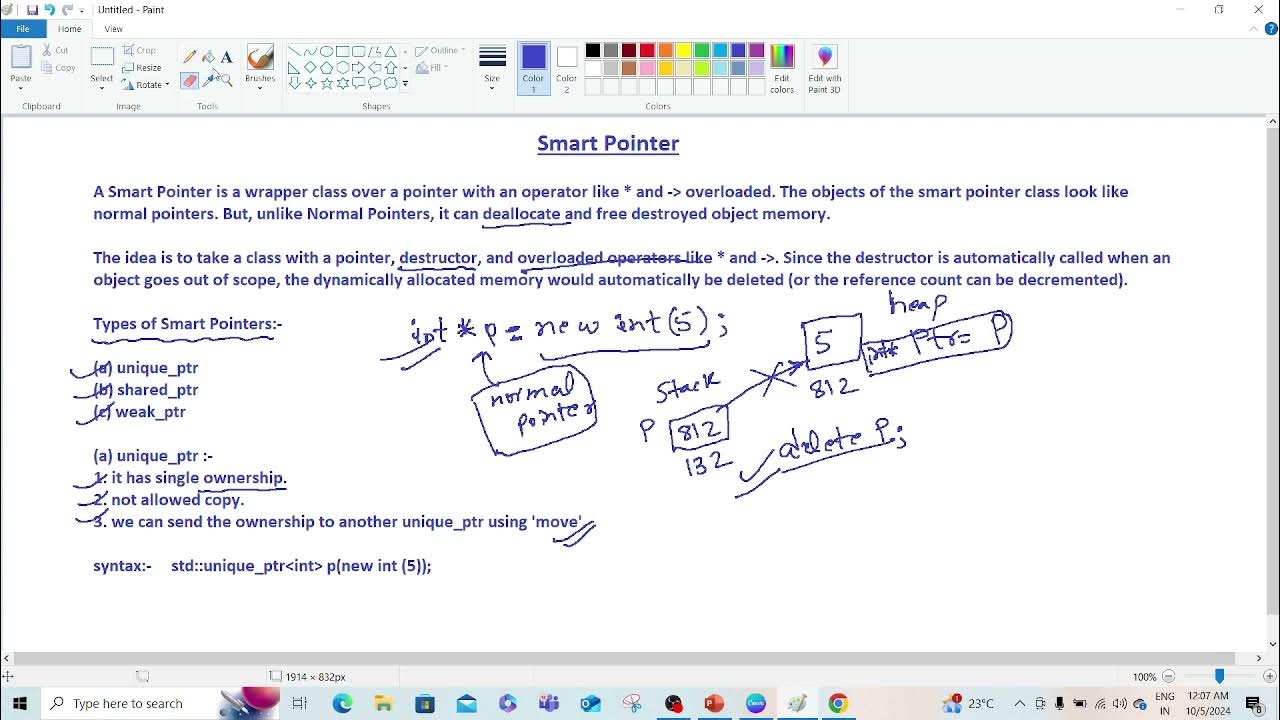 Untitled - Paint
File
Home
View
Paste
Cut
Copy
Clipboard
Select
Crop
Resize
Rotate
Image
Tools
Brushes
Shapes
Outline
Fill
Size
Color 1
Color 2
Colors
Edit colors
Edit with Paint 3D
Smart Pointer
A Smart Pointer is a wrapper class over a pointer with an operator like * and -> overloaded. The objects of the smart pointer class look like
normal pointers. But, unlike Normal Pointers, it can deallocate and free destroyed object memory.
The idea is to take a class with a pointer, destructor, and overloaded operators like * and ->. Since the destructor is automatically called when an
object goes out of scope, the dynamically allocated memory would automatically be deleted (or the reference count can be decremented).
Types of Smart Pointers:-
(a) unique_ptr
(b) shared_ptr
(c) weak_ptr
int * p = new int (5);
normal
pointer
Stack
P
812
132
heap
5
812
int* Ptr = P
delete P;
(a) unique_ptr :-
1. it has single ownership.
2. not allowed copy.
3. we can send the ownership to another unique_ptr using 'move'
syntax:- std::unique_ptr<int> p(new int (5));
1914 × 832px
100%
Type here to search
23°C
ENG
IN
12:07 AM
10/5/2024